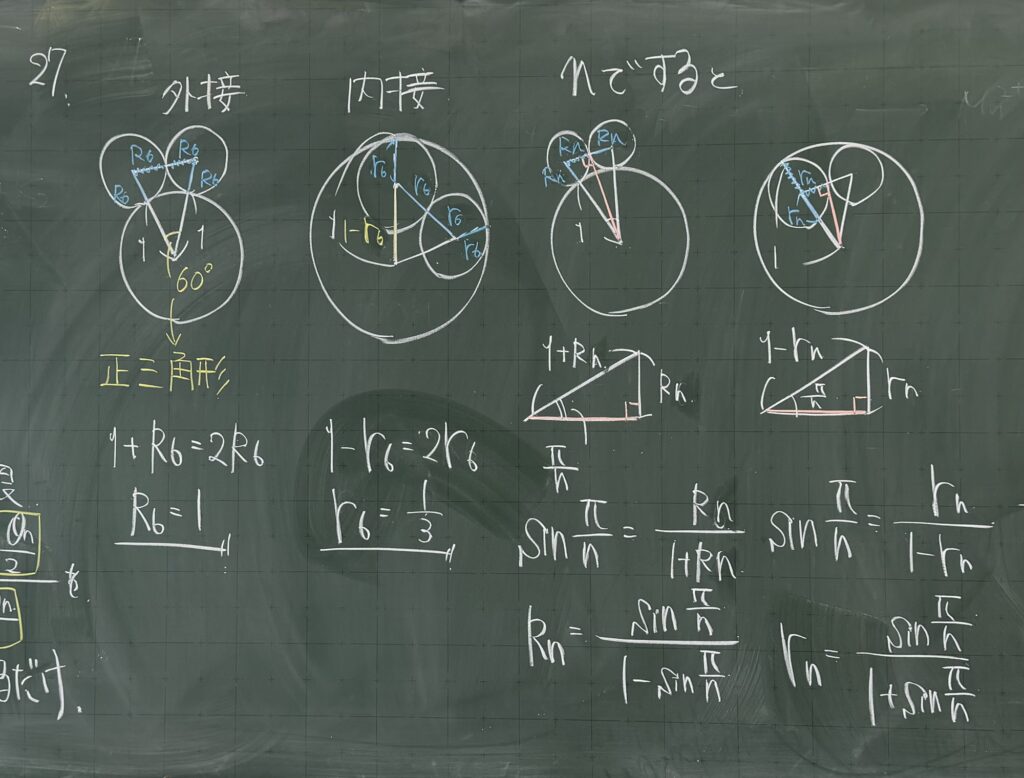 27.
外接
R6 R6
R6 R6
1 1
60°
正三角形
1+R6=2R6
R6=1
内接
r6
r6
1 1-r6
r6
r6
1-r6=2r6
r6=1/3
nですると
Rn Rn
Rn
1
1+Rn
Rn
π/n
sin π/n = Rn/(1+Rn)
Rn = sin π/n / (1-sin π/n)
rn
rn
1
1-rn
π/n
rn
sin π/n = rn/(1-rn)
rn = sin π/n / (1+sin π/n)
θn/2
を
だけ.